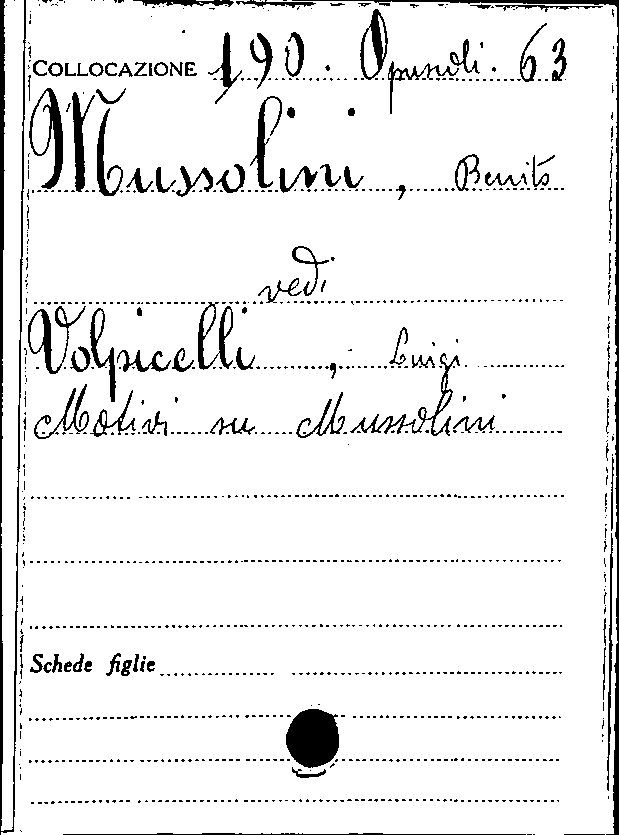 COLLOCAZIONE 190. Opuscoli. 63
Mussolini, Benito
vedi
Volpicelli, Luigi
Motivi su Mussolini
Schede figlie